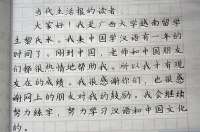 当代生活报的读者
大家好！我是广西大学越南留学
生黎氏长。我来中国学汉语有一年的
时间了。刚到中国，老师和中国朋友
们都很热情地帮助我。所以我才有现
友在的成绩。我很感谢你们，也很感
谢网上的朋友对我的鼓励。我会继续
努力练字，努力学习汉语和中国文化
的。